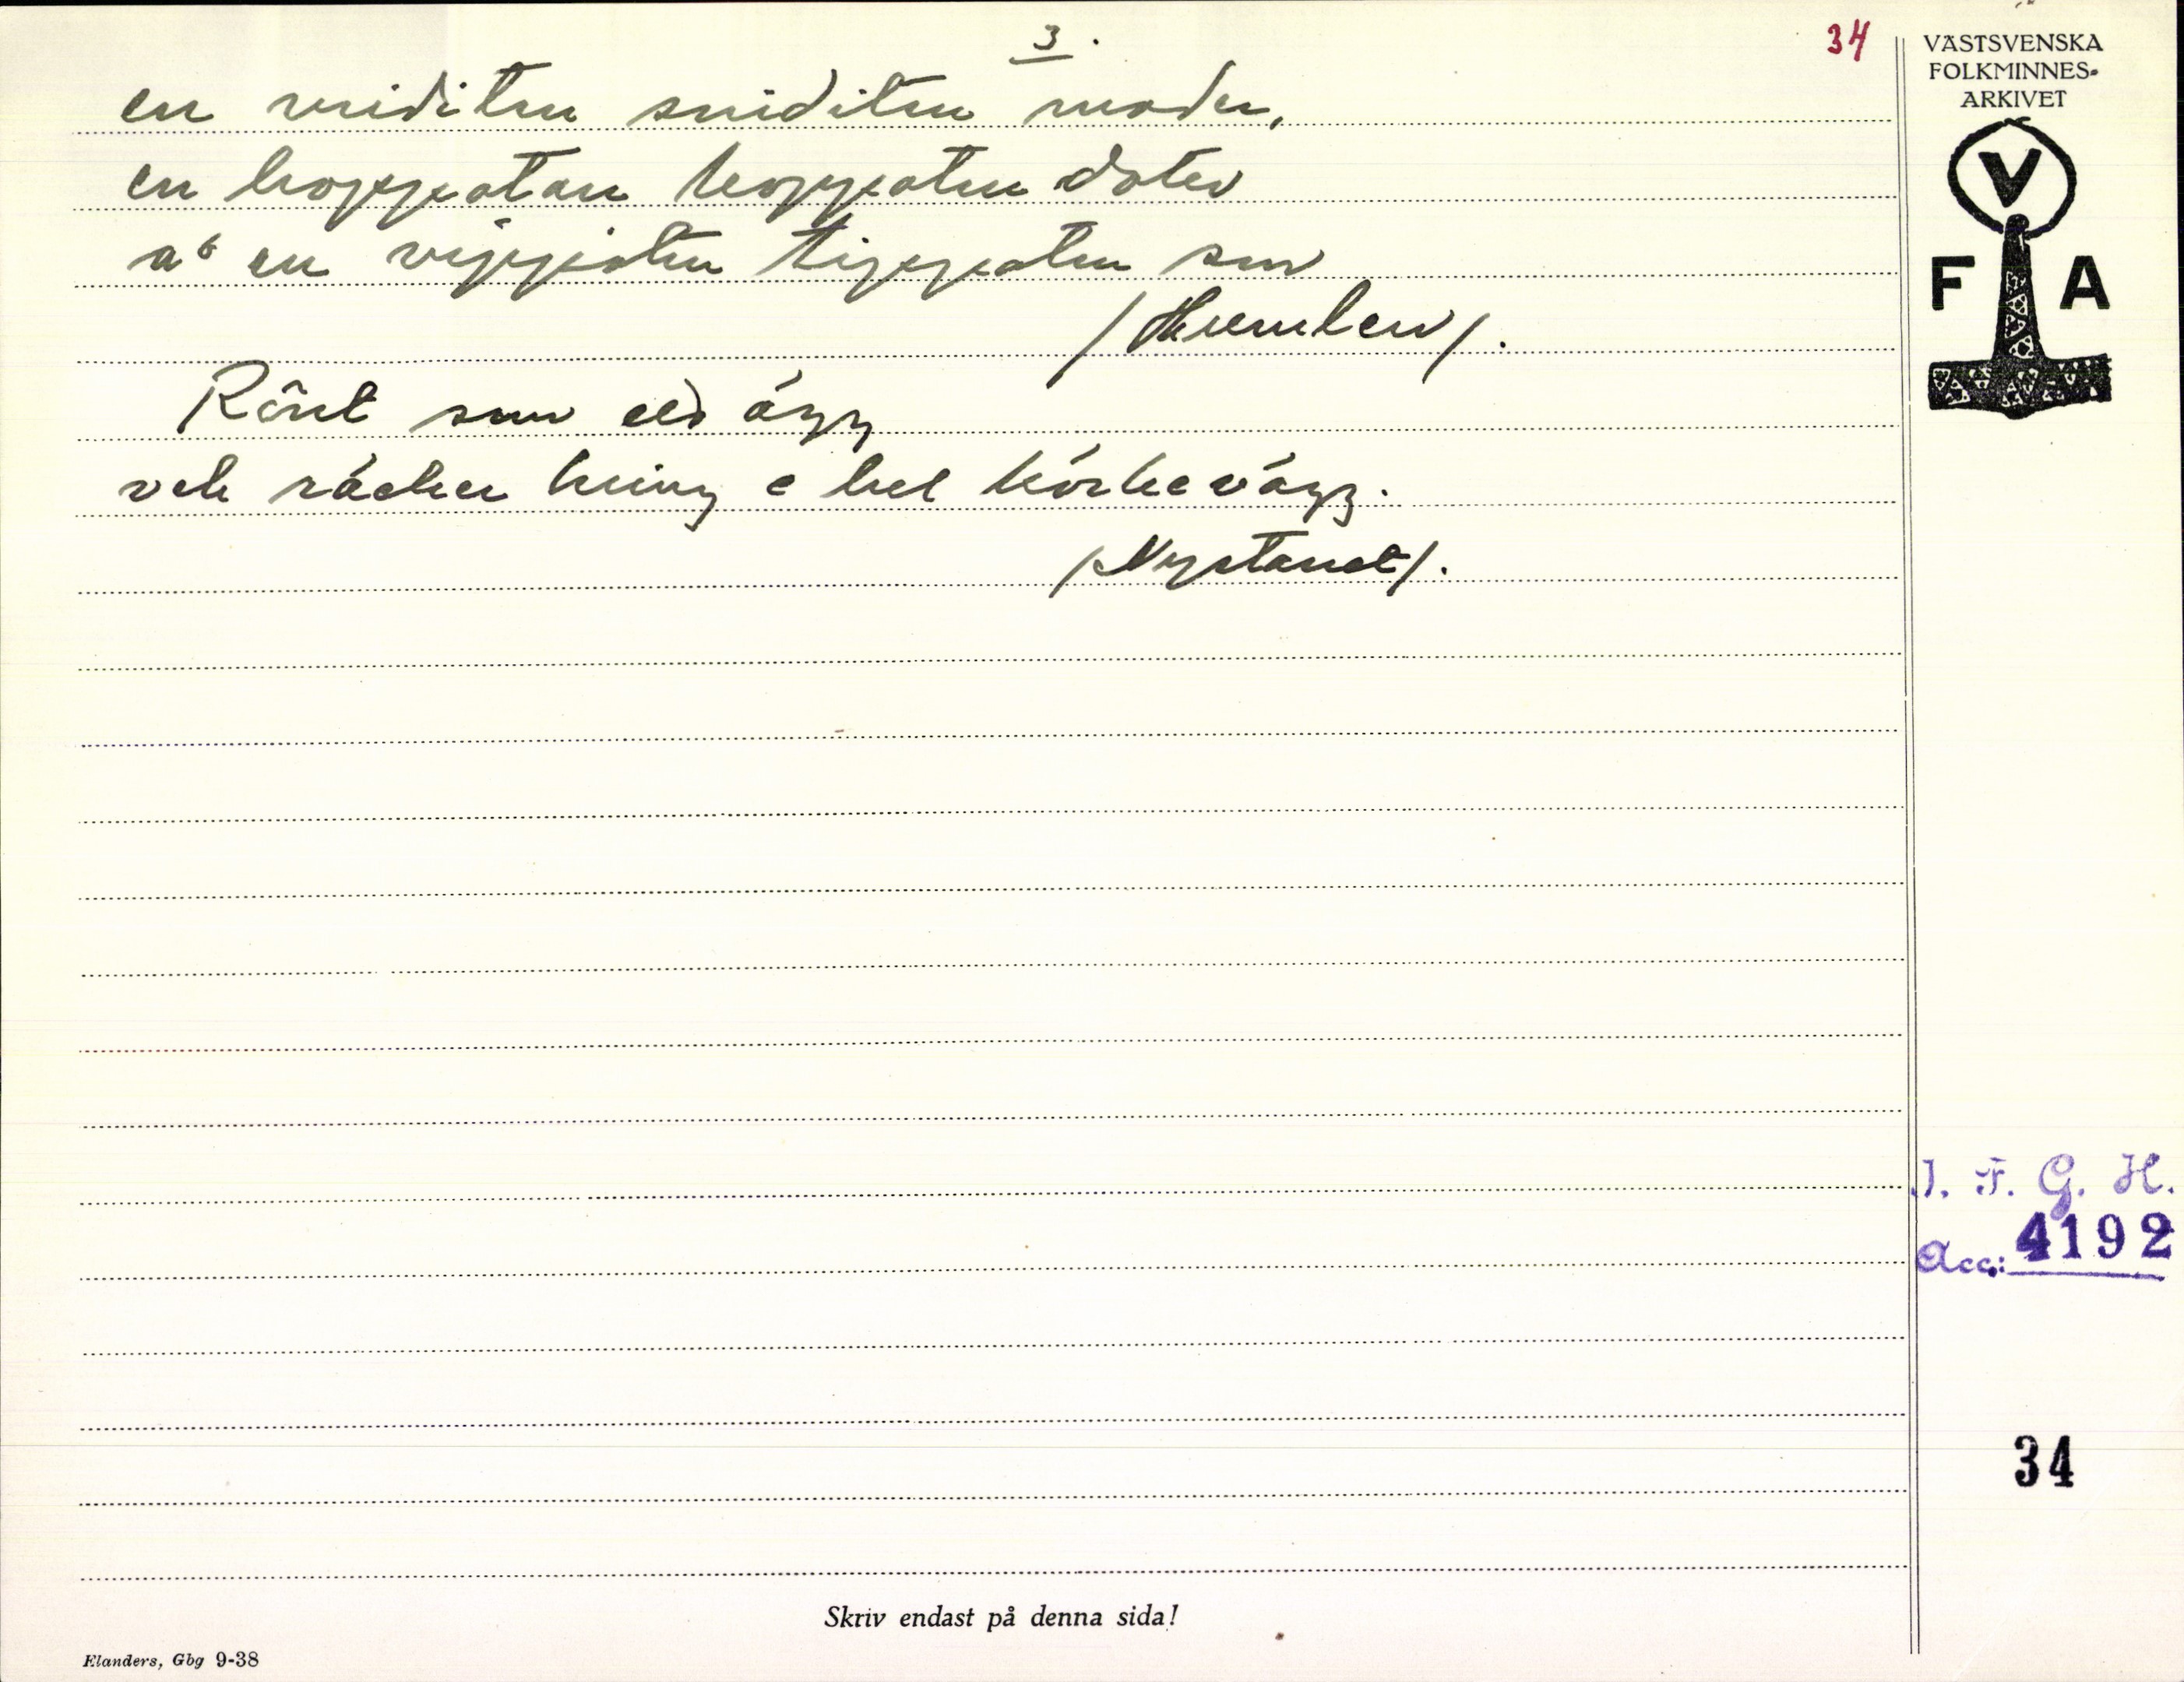 3.
34
en vriditen sniditen moder,
en koppotan koppoten doter
å en vippoten tippoten son
/Humlen/.
Rönt som ett ägg
vek räcker kring e hel körkevägg.
/Nystanet/.
VÄSTSVENSKA
FOLKMINNES-
ARKIVET
V
F A
I. F. G. H.
Acc.: 4192
34
Skriv endast på denna sida!
Elanders, Gbg 9-38